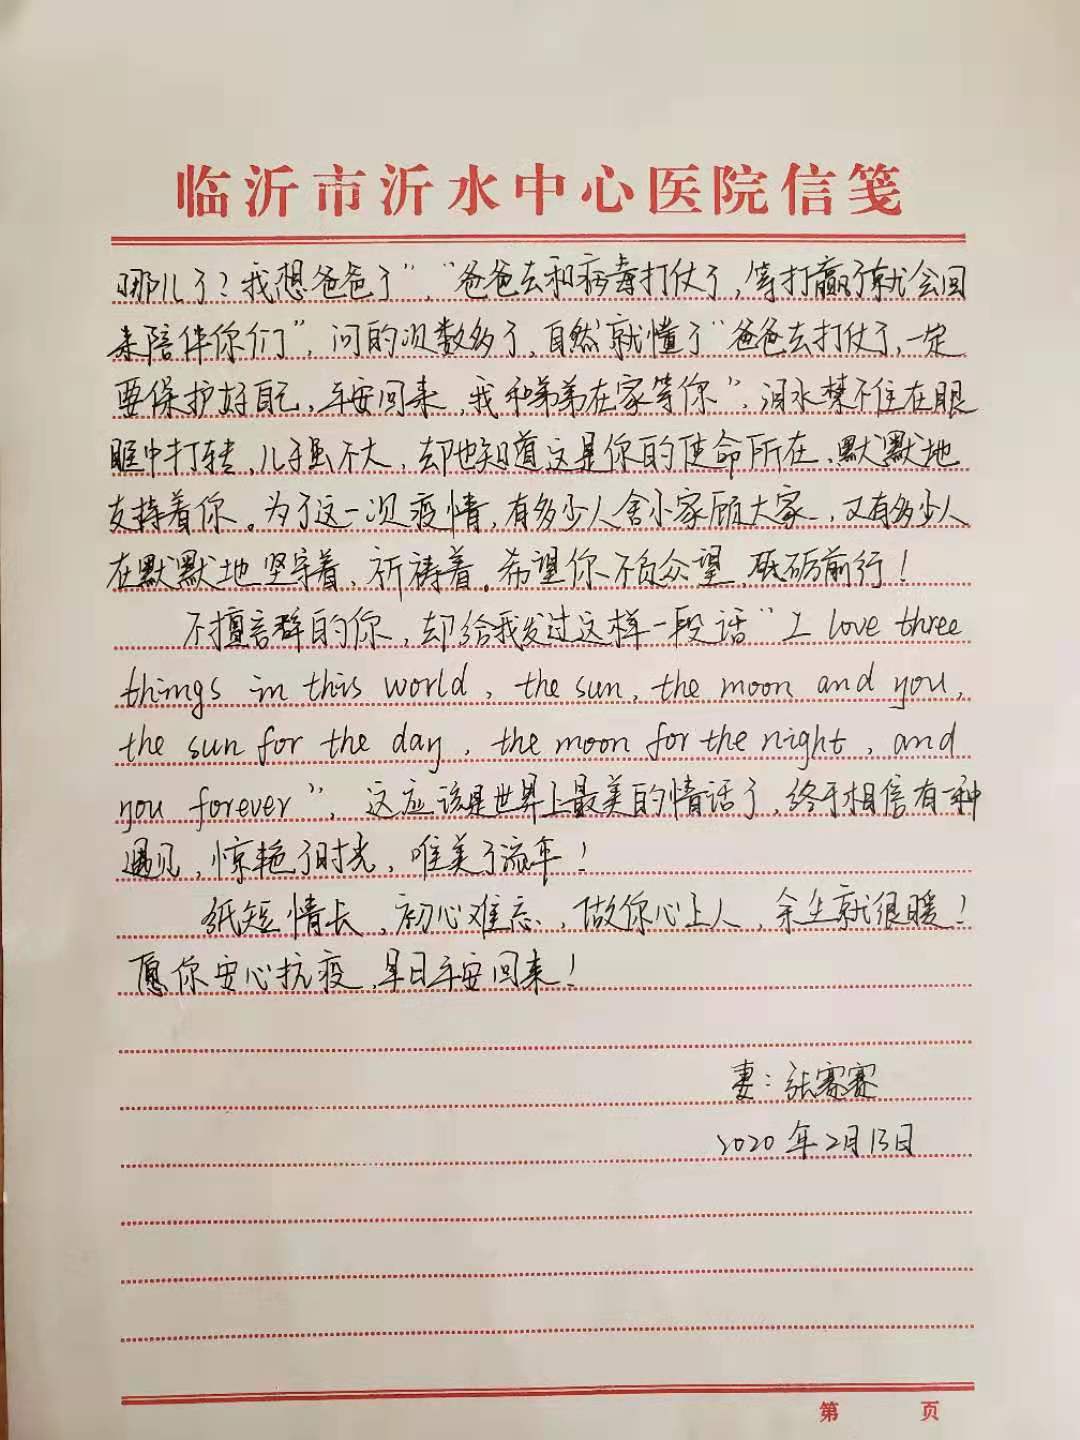 临沂市沂水中心医院信笺
哪儿了？我想爸爸了”，“爸爸去和病毒打仗了，等打赢了就会回
来陪伴你们”，问的次数多了，自然就懂了“爸爸去打仗了，一定
要保护好自己，平安回来，我和弟弟在家等你”，泪水禁不住在眼
眶中打转，儿子虽不大，却也知道这是你的使命所在，默默地
支持着你。为了这一次疫情，有多少人舍小家顾大家，又有多少人
在默默地坚守着、祈祷着。希望你不负众望，砥砺前行！
不擅言辞的你，却给我发过这样一段话“I love three
things in this world, the sun, the moon and you,
the sun for the day, the moon for the night, and
you forever”，这应该是世界上最美的情话了，终于相信有一种
遇见，惊艳了时光，唯美了流年！
纸短情长，初心难忘，做你心上人，余生就很暖！
愿你安心抗疫，早日平安回来！
妻：张赛赛
2020年2月13日
第 页